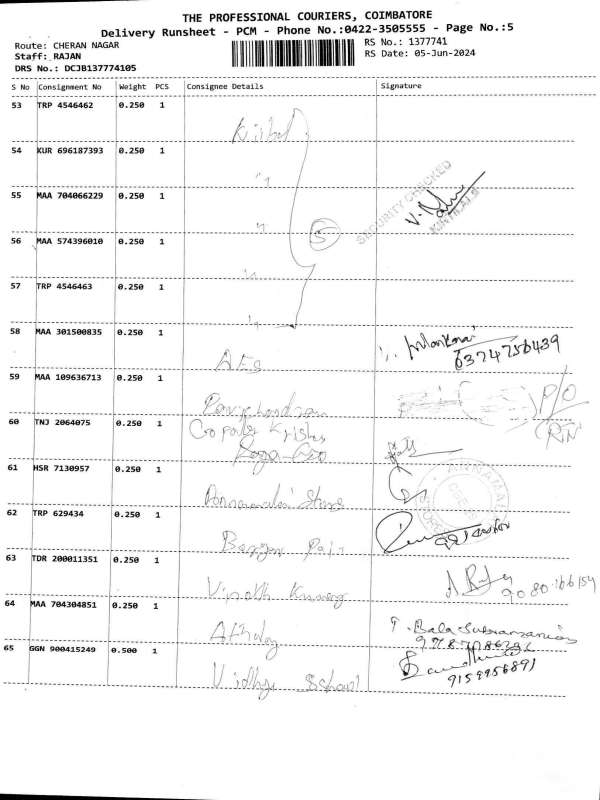 THE PROFESSIONAL COURIERS, COIMBATORE
Delivery Runsheet - PCM - Phone No.:0422-3505555 - Page No.:5
Route: CHERAN NAGAR
RS No.: 1377741
Staff: RAJAN
RS Date: 05-Jun-2024
DRS No.: DCJB137774105
S No Consignment No Weight PCS Consignee Details Signature
53 TRP 4546462 0.250 1
54 KUR 696187393 0.250 1 "
55 MAA 704066229 0.250 1 "
SECURITY CHECKED
56 MAA 574396010 0.250 1 "
5
57 TRP 4546463 0.250 1 "
58 MAA 301500835 0.250 1 AES
6374756439
59 MAA 109636713 0.250 1 Ravichandran
P/O
60 TNJ 2064075 0.250 1 Gopala Krishn
(RN)
61 HSR 7130957 0.250 1 Annamalai Stores
62 TRP 629434 0.250 1
63 TDR 200011351 0.250 1 Vinoth Kumar
64 MAA 704304851 0.250 1
T. Bala Subramanian
65 GGN 900415249 0.500 1 Vidhya
9159956891